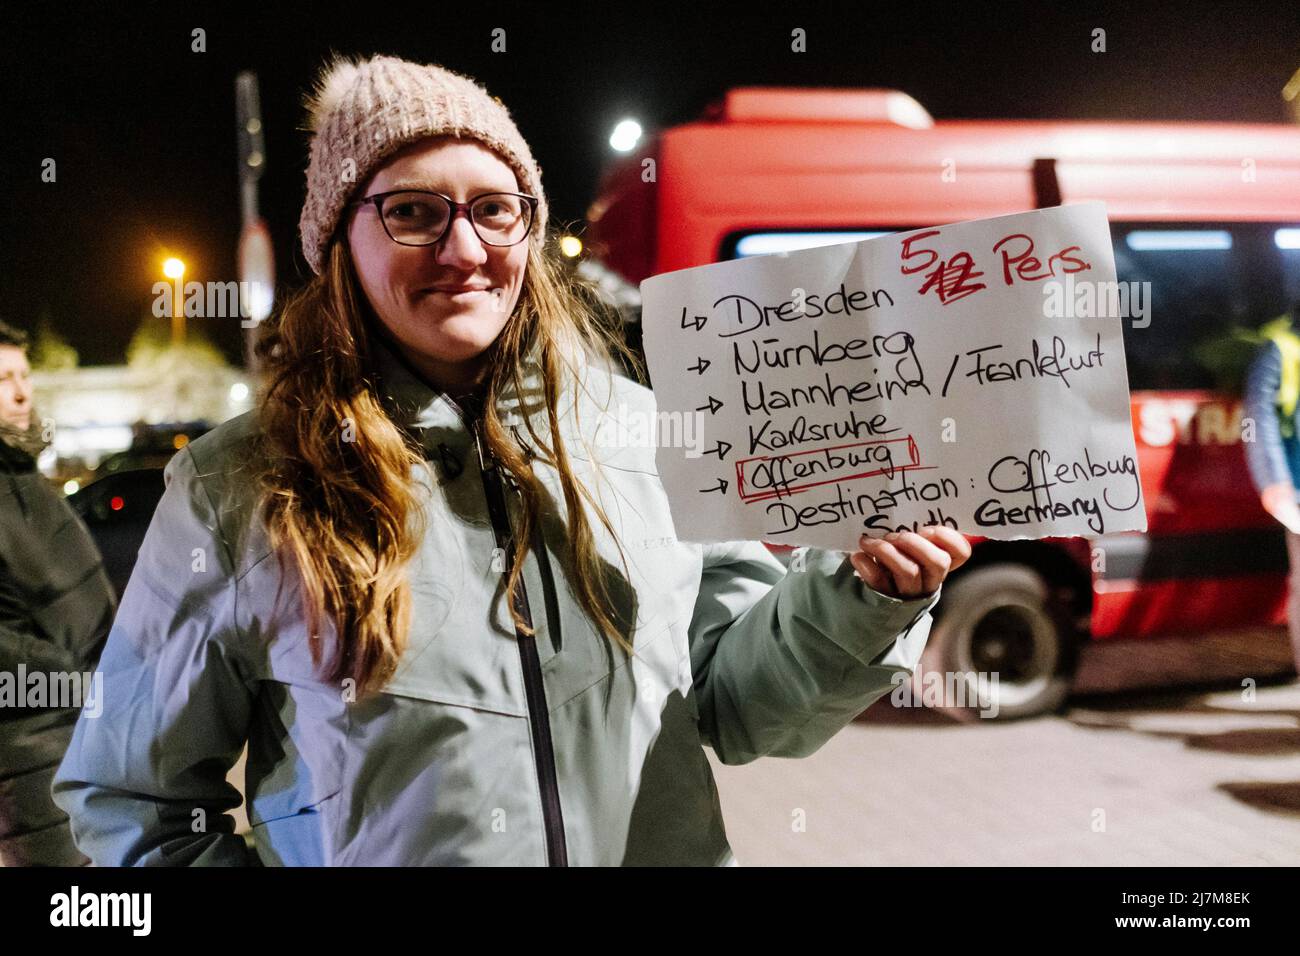 5 12 Pers.
↳ Dresden
→ Nürnberg
→ Mannheim / Frankfurt
→ Karlsruhe
→ Offenburg
Destination: Offenburg
South Germany
STRA
a
alamy
Image ID: 2J7M8EK
www.alamy.com